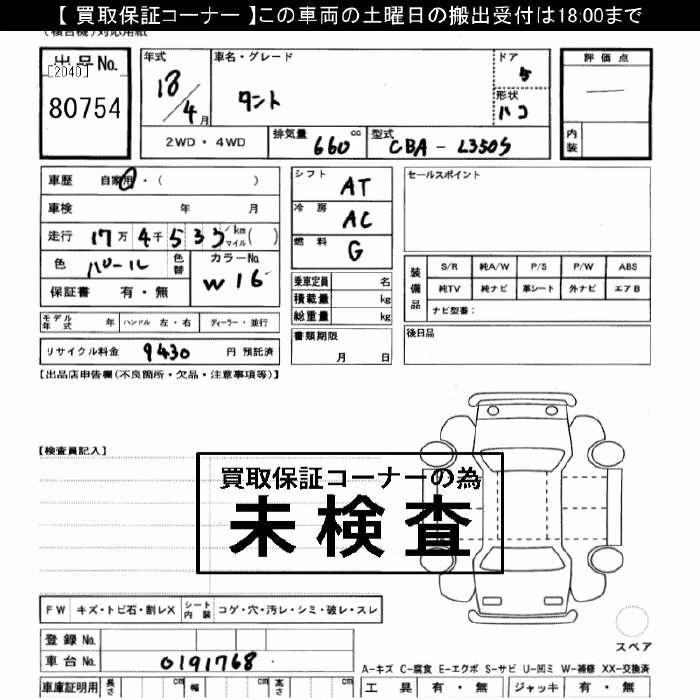 【 買取保証コーナー 】この車両の土曜日の搬出受付は18:00まで
出品No.
[2040]
80754
年式
18/4月
車名・グレード
タント
ドア
5
形状
ハコ
評価点
—
内装
2WD・4WD
排気量 660 cc
型式 CBA-L350S
車歴 自家用・( )
車検 年 月
走行 17万4千533 km マイル( )
色 パール 色替
カラーNo. W16
保証書 有・無
シフト AT
冷房 AC
燃料 G
乗車定員 名
積載量 kg
総重量 kg
書類期限
月 日
セールスポイント
装備品
S/R 純A/W P/S P/W ABS
純TV 純ナビ 革シート 外ナビ エアB
ナビ型番:
後日品
モデル年式 年 ハンドル 左・右 ディーラー・並行
リサイクル料金 9430 円 預託済
【出品店申告欄(不良箇所・欠品・注意事項等)】
【検査員記入】
買取保証コーナーの為
未検査
FW キズ・トビ石・割レX シート内装 コゲ・穴・汚レ・シミ・破レ・スレ
登録 No.
車台 No. 0191768
スペア
A-キズ C-腐食 E-エクボ S-サビ U-凹ミ W-補修 XX-交換済
車庫証明用 長さ cm 幅 cm 高さ cm
工具 有・無 ジャッキ 有・無